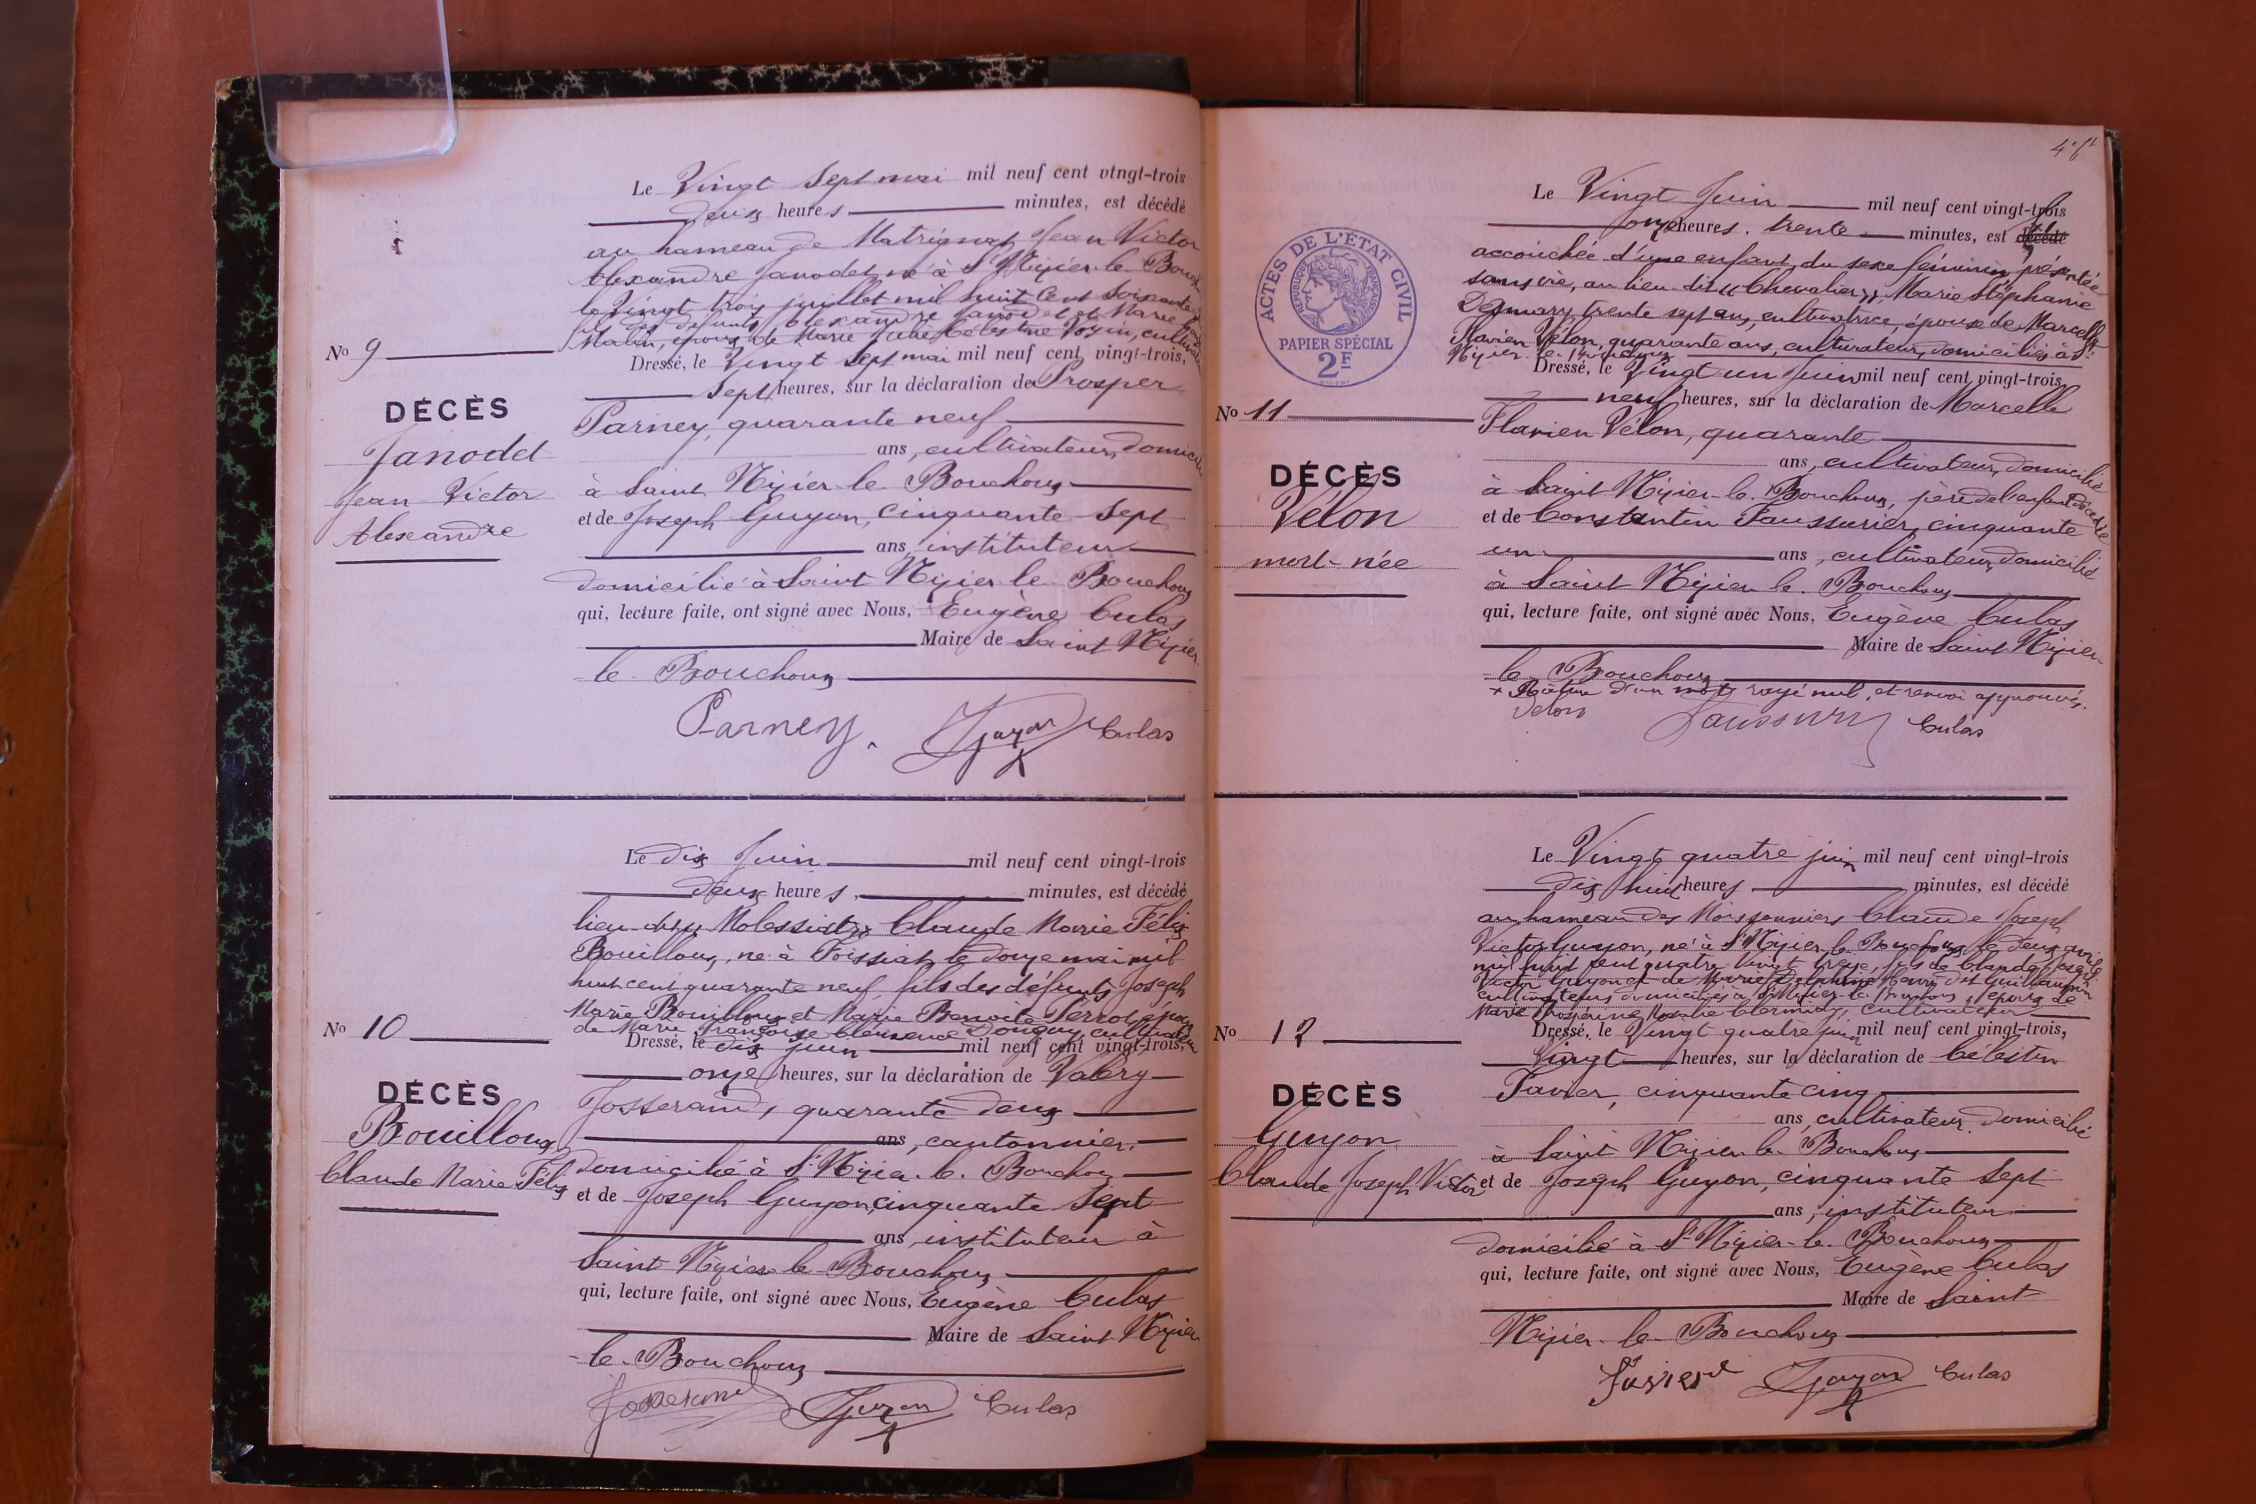 Le Vingt Sept mai mil neuf cent vingt-trois
deux heures minutes, est décédé
au hameau de Matrignat Jean Victor
Alexandre Janodet né à St Nizier-le-Bouchoux
le Vingt trois juillet mil huit Cent Soixante
fils des défunts Alexandre Janodet et Marie
époux de Marie Julie Célestine Voisin, cultivateur
No 9
Dressé, le Vingt Sept mai mil neuf cent vingt-trois,
Sept heures, sur la déclaration de Prosper
DÉCÈS
Parney, quarante neuf
Janodet
ans, cultivateur, domicilié
Jean Victor
à Saint Nizier le Bouchoux
Alexandre
et de Joseph Guyon, Cinquante Sept
ans, instituteur
domicilié à Saint Nizier le Bouchoux
qui, lecture faite, ont signé avec Nous, Eugène Culas
Maire de Saint Nizier
le Bouchoux
Parney. Guyon Culas
Le dix Juin mil neuf cent vingt-trois
deux heures, minutes, est décédé
lieu dit « Molessiat » Claude Marie Félix
Bouilloux, né à Foissiat le douze mai mil
huit cent quarante neuf, fils des défunts Joseph
Marie Bouilloux et Marie Benoite Perrot, époux
de Marie Françoise Clémence Donguy, cultivateur
No 10
Dressé, le dix juin mil neuf cent vingt-trois,
onze heures, sur la déclaration de Valéry
DÉCÈS
Josserand, quarante deux
Bouilloux
ans, cantonnier,
Claude Marie Félix
domicilié à St Nizier-le-Bouchoux
et de Joseph Guyon, cinquante Sept
ans, instituteur à
Saint Nizier le Bouchoux
qui, lecture faite, ont signé avec Nous, Eugène Culas
Maire de Saint Nizier
-le-Bouchoux
Josserand Guyon Culas
ACTES DE L'ÉTAT CIVIL
RÉPUBLIQUE FRANÇAISE
PAPIER SPÉCIAL
2F
Le Vingt Juin mil neuf cent vingt-trois
onze heures, trente minutes, est décédé
accouchée d'une enfant, du sexe féminin, présentée
sans vie, au lieu dit « Chevalier » Marie Stéphanie
trente sept ans, cultivatrice, épouse de Marcelle
Flavien Vélon, quarante ans, cultivateur, domiciliés à St
Nizier-le-Bouchoux
Dressé, le Vingt un Juin mil neuf cent vingt-trois,
neuf heures, sur la déclaration de Marcelle
No 11
Flavien Vélon, quarante
DÉCÈS
ans, cultivateur, domicilié
Vélon
à Saint Nizier-le-Bouchoux, père de l'enfant décédé
mort-née
et de Constantin Faussurier, cinquante
un ans, cultivateur, domicilié
à Saint Nizier le-Bouchoux
qui, lecture faite, ont signé avec Nous, Eugène Culas
Maire de Saint Nizier-
le-Bouchoux
d'un mot rayé nul, et renvoi approuvés.
Velon Culas
Le Vingt quatre juin mil neuf cent vingt-trois
dix huit heures minutes, est décédé
au hameau des Moissonniers Claude Joseph
Victor Guyon, né à St Nizier-le-Bouchoux, le deux avril
mil huit cent quatre Vingt treize, fils de Claude Joseph
Victor Guyon et de Marie Delphine
cultivateurs, domiciliés à St Nizier-le-Bouchoux, époux de
Marie cultivateur
No 12
Dressé, le Vingt quatre juin mil neuf cent vingt-trois,
Vingt heures, sur la déclaration de Célestin
DÉCÈS
Favier, cinquante cinq
Guyon
ans, cultivateur, domicilié
à Saint Nizier le Bouchoux
Claude Joseph Victor
et de Joseph Guyon, cinquante Sept
ans, instituteur
domicilié à St Nizier-le-Bouchoux
qui, lecture faite, ont signé avec Nous, Eugène Culas
Maire de Saint
Nizier-le-Bouchoux
Favier Guyon Culas